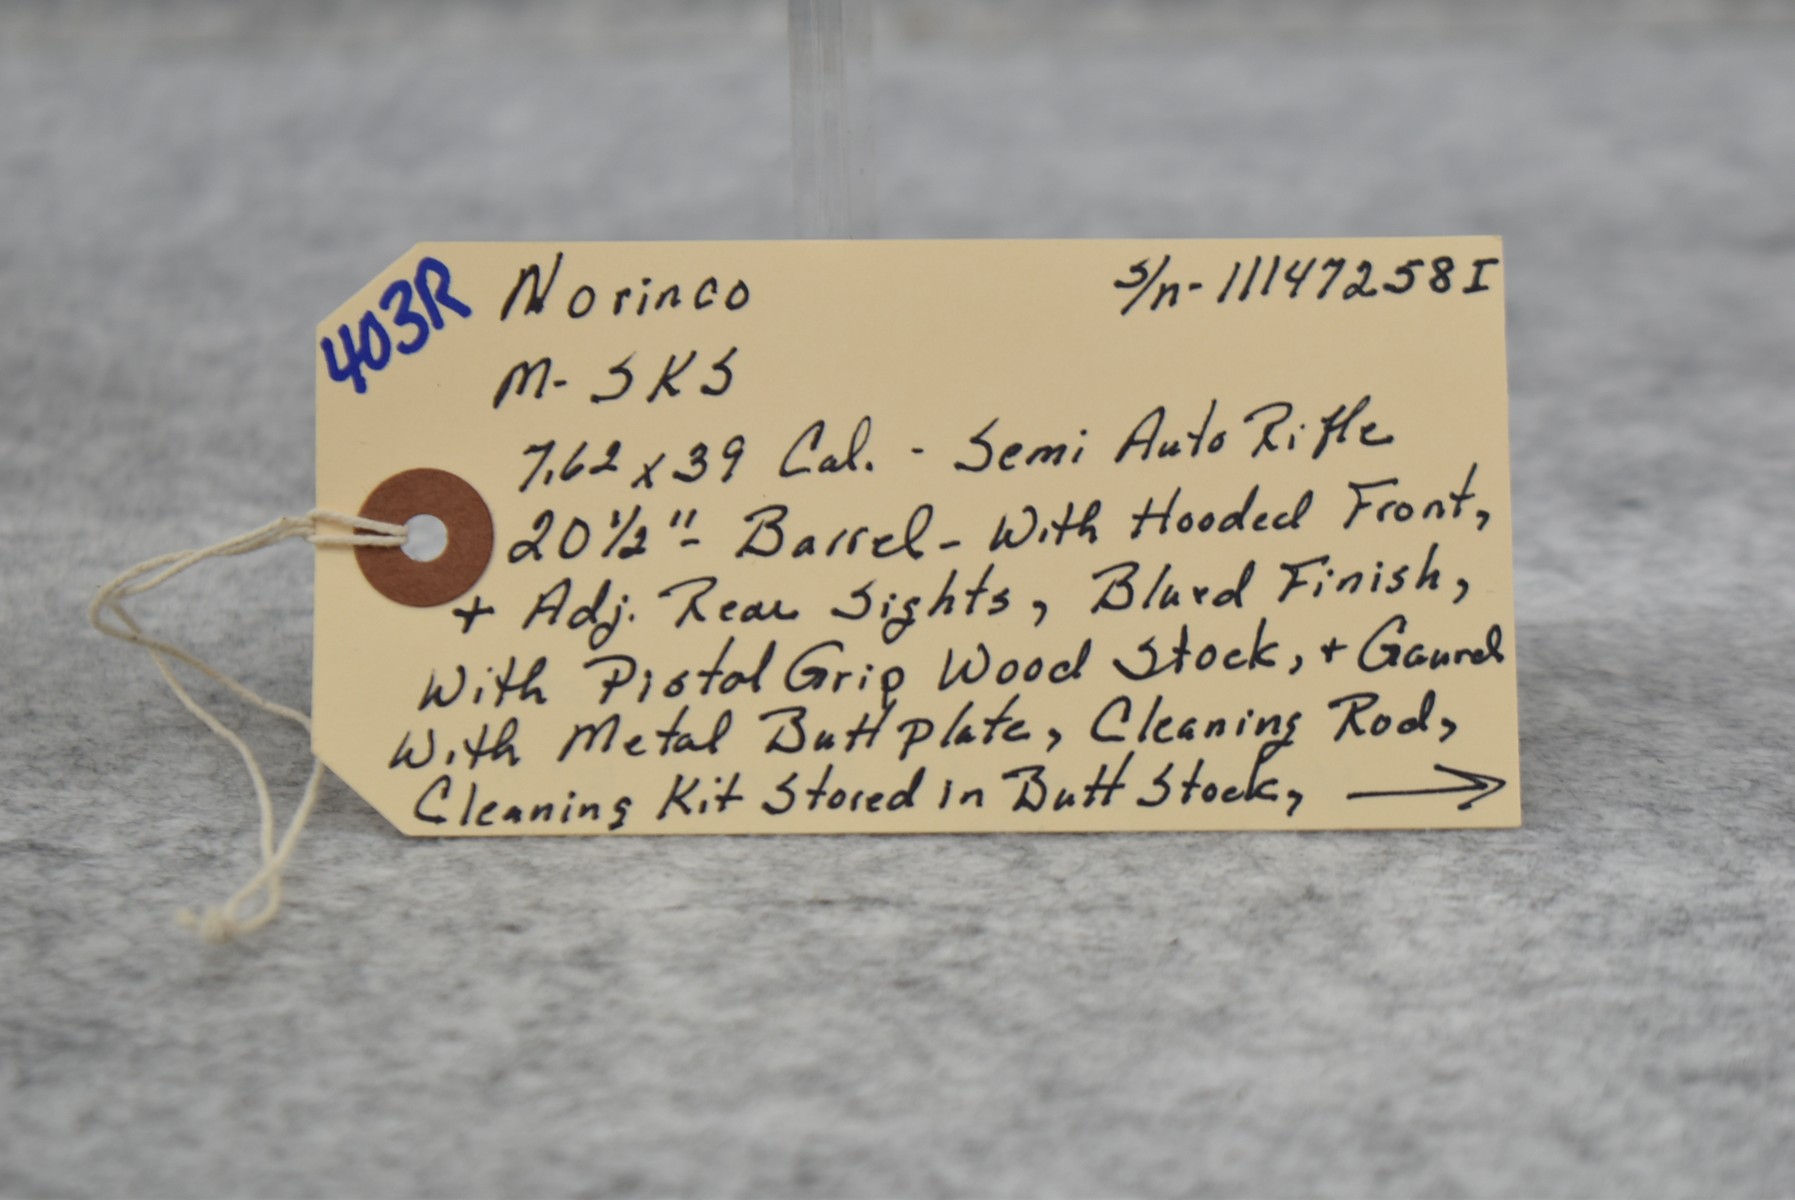 403R
Norinco
S/n- 11147258I
M- SKS
7.62 x 39 Cal. - Semi Auto Rifle
20 1/2" - Barrel - With Hooded Front,
+ Adj. Rear Sights, Blued Finish,
With Pistol Grip Wood Stock, + Gaurd
With Metal Butt plate, Cleaning Rod,
Cleaning Kit Stored in Butt Stock, →